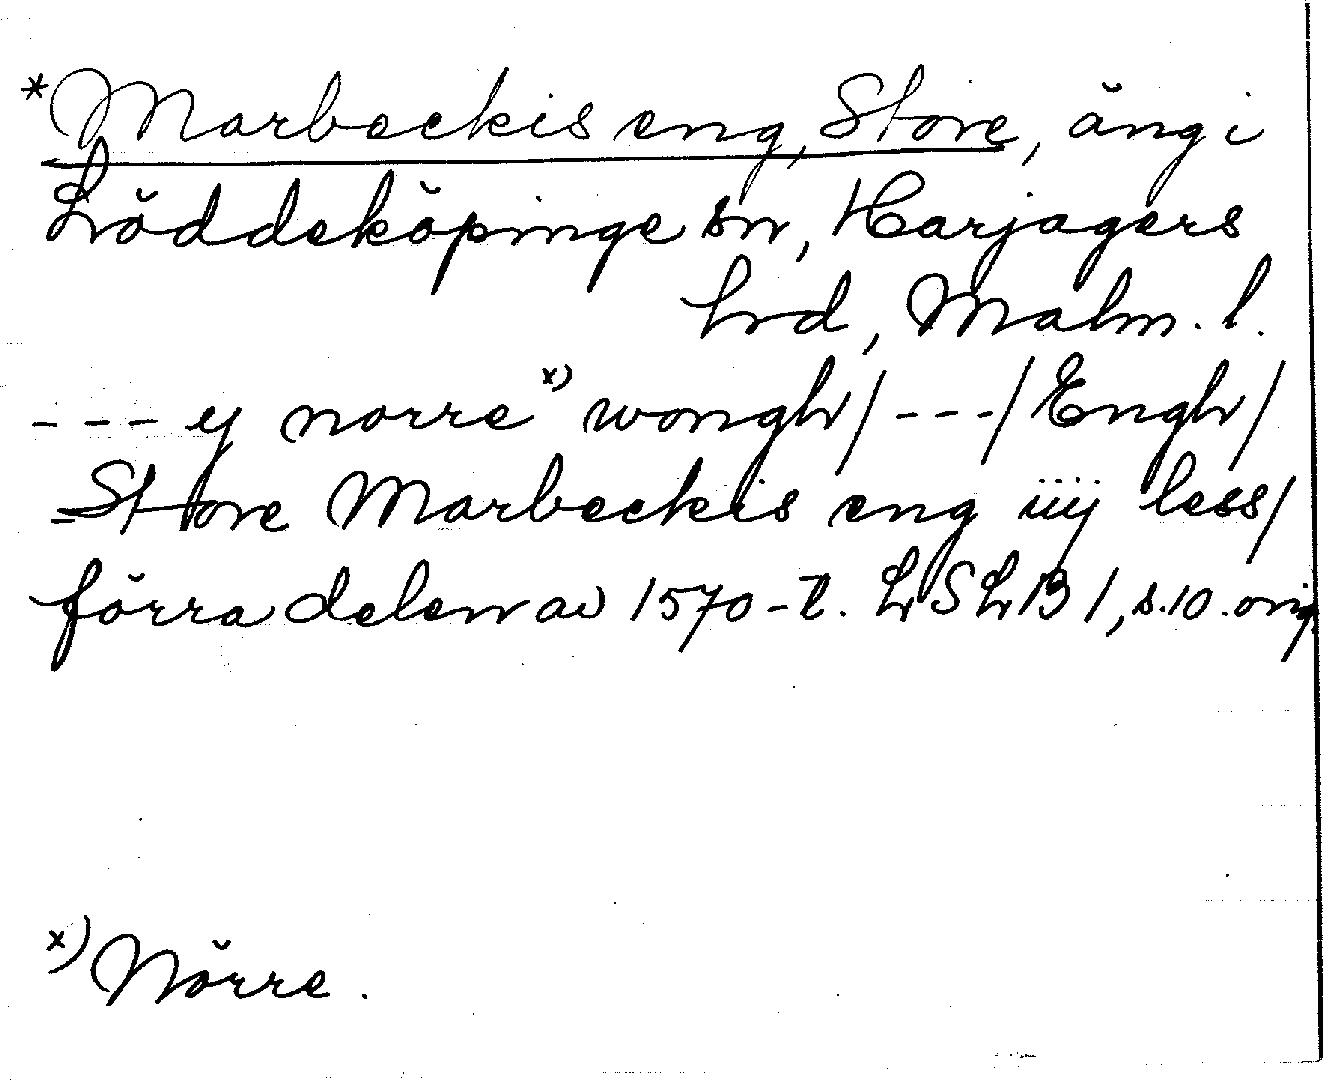 *Marbeckis eng, Store, äng i
Löddeköpinge sn, Harjagers
hrd, Malm. l.
--- ej norre x) wongh/ ---/ Engh/
Store Marbeckis eng iiij less/
förra delen av 1570-t. LSLB 1, s. 10. orig.
x) Nörre.